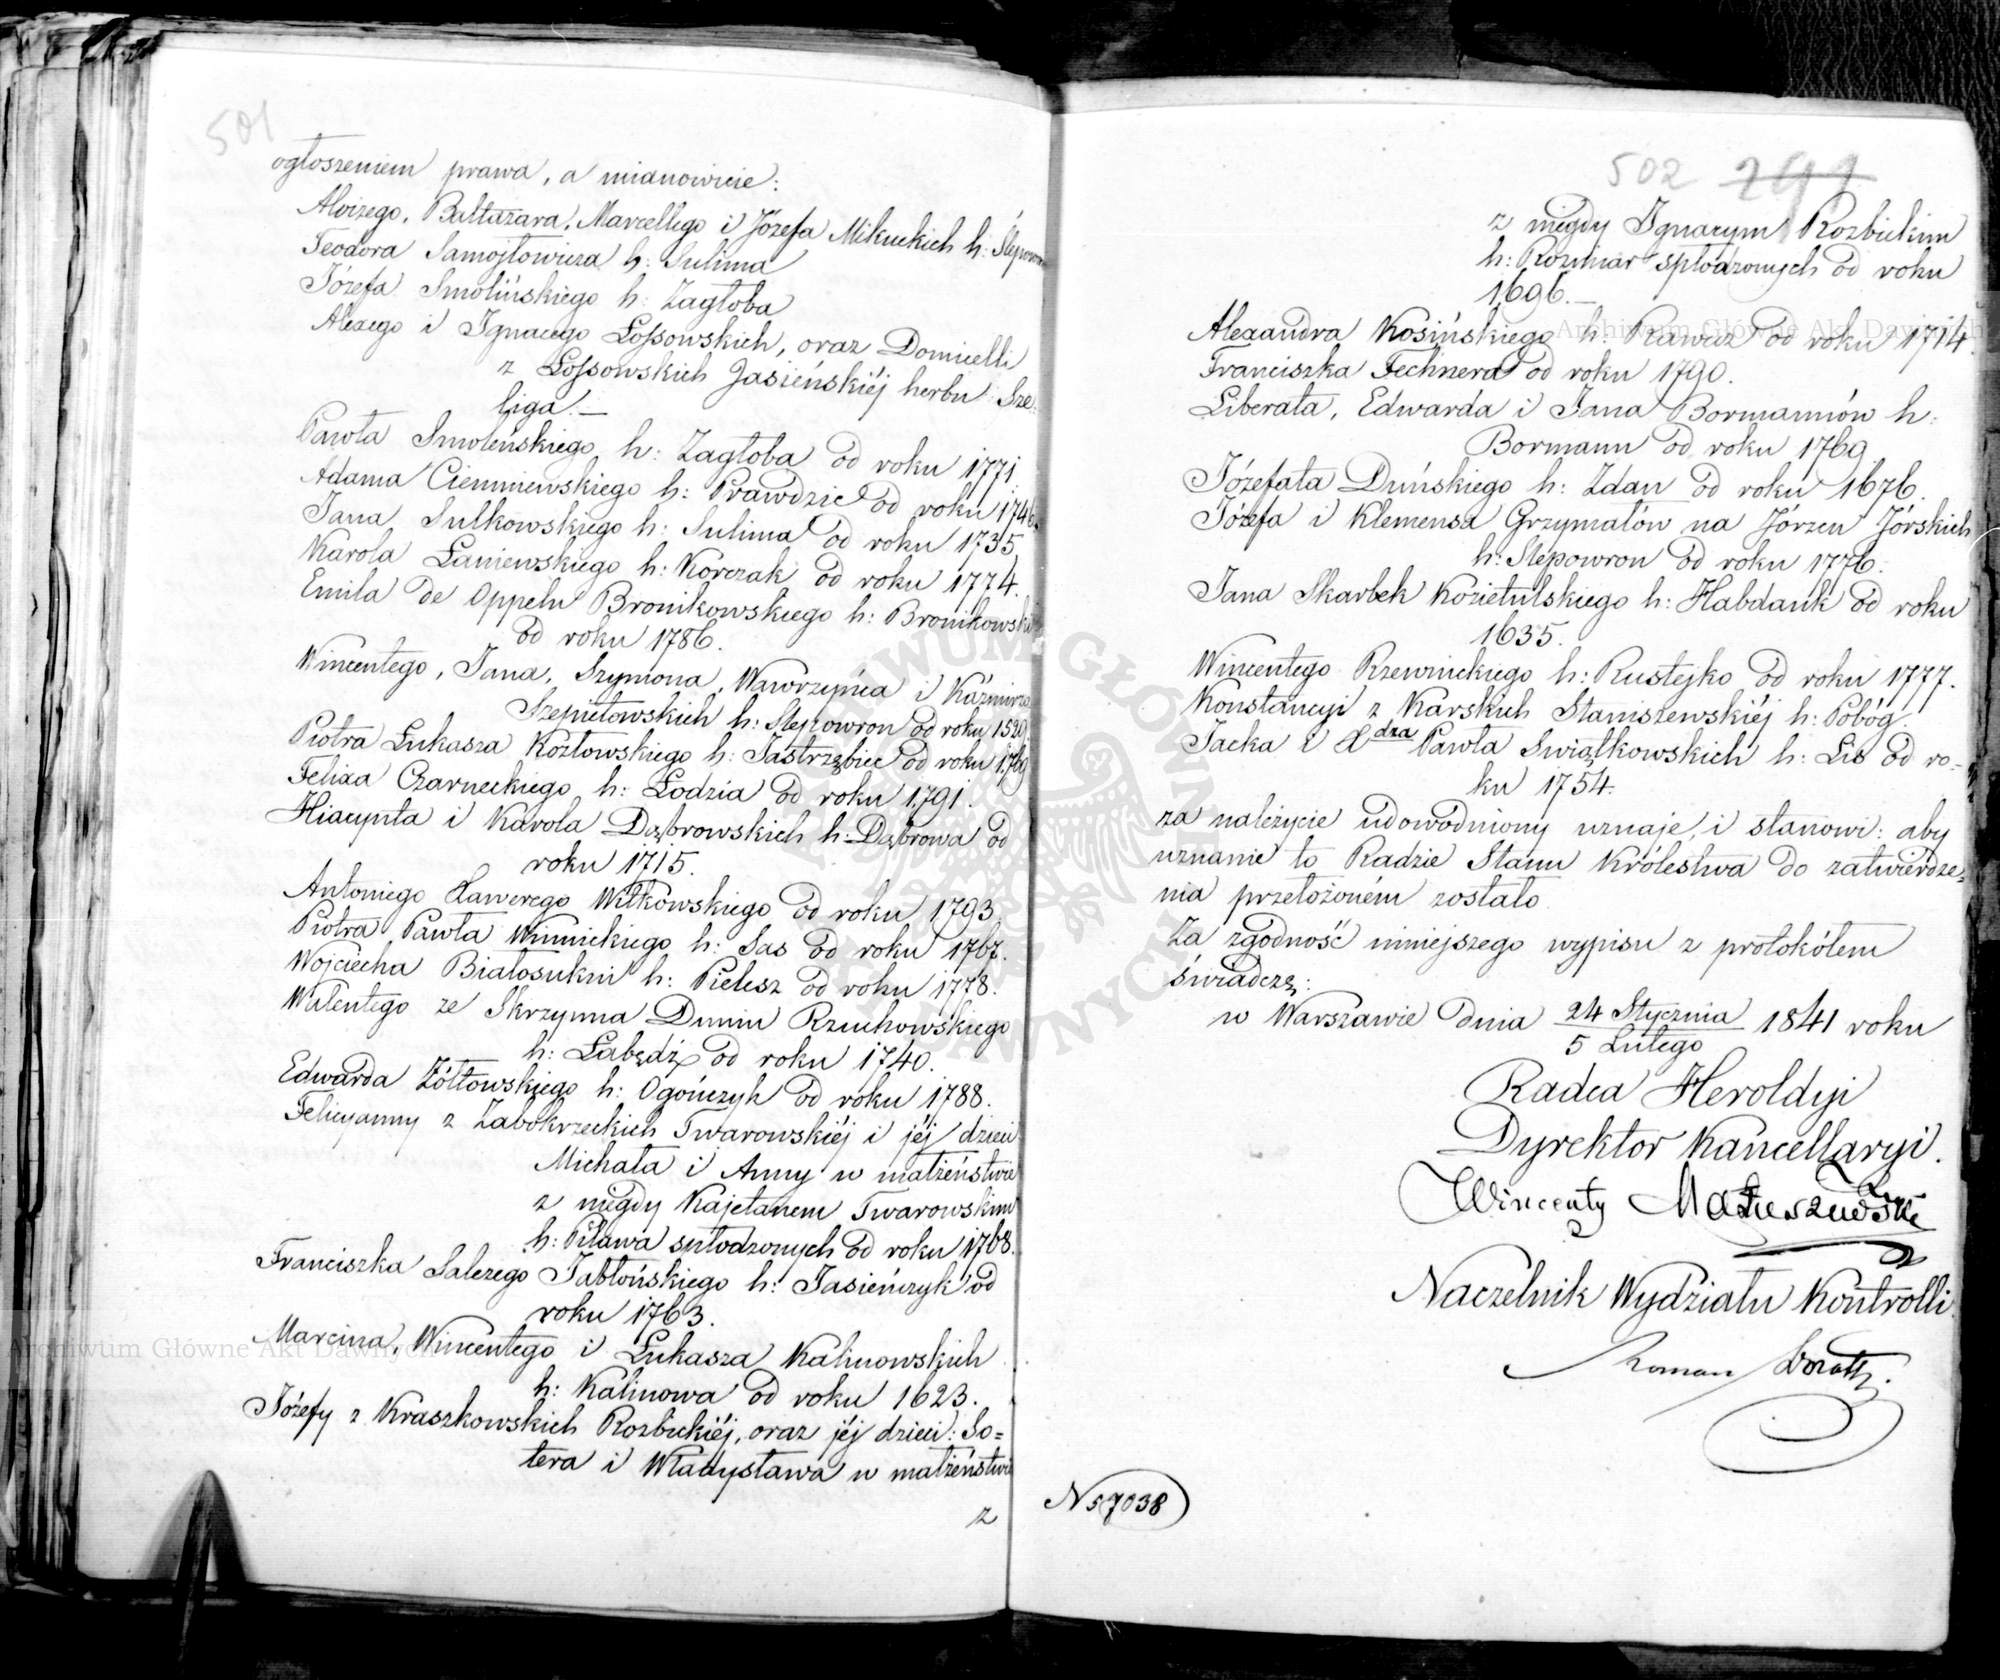 501
ogłoszeniem prawa, a mianowicie:
Aloizego, Baltazara, Marcellego i Józefa Mikuckich h: Ślepowron
Teodora Samojłowicza h: Sulima
Józefa Smolińskiego h: Zagłoba
Alexego i Ignacego Łossowskich, oraz Domicelli
z Łossowskich Jasieńskiéj herbu Sze:
liga. —
Pawła Smoleńskiego h: Zagłoba od roku 1771.
Adama Ciemniewskiego h: Prawdzic od roku 1746.
Jana Sulkowskiego h: Sulima od roku 1735.
Karola Laniewskiego h: Korczak od roku 1774.
Emila de Oppeln Bronikowskiego h: Bronikowski
od roku 1786.
Wincentego, Jana, Szymona, Wawrzyńca i Kaźmirza
Szepietowskich h: Slepowron od roku 1529.
Piotra Łukasza Kozłowskiego h: Jastrzębiec od roku 1789
Felixa Czarneckiego h: Łodzia od roku 1791.
Hiacynta i Karola Dąbrowskich h: Dąbrowa od
roku 1715.
Antoniego Xawerego Witkowskiego od roku 1793.
Piotra Pawła Winnickiego h: Sas od roku 1767.
Wojciecha Białosukni h: Pielesz od roku 1778.
Walentego ze Skrzynna Dunin Rzuchowskiego
h: Łabędź od roku 1740.
Edwarda Żółtowskiego h: Ogończyk od roku 1788.
Felicyanny z Zabokrzeckich Twarowskiéj i jéj dzieci
Michała i Anny w małżeństwie
z niegdy Kajetanem Twarowskim
h: Pilawa spłodzonych od roku 1768.
Franciszka Salezego Jabłońskiego h: Jasieńczyk od
roku 1763.
Marcina, Wincentego i Łukasza Kalinowskich
h: Kalinowa od roku 1623.
Józefy z Kraszkowskich Rozbickiéj, oraz jéj dzieci: So=
tera i Władysława w małżeństwie
z
502 291
z niegdy Ignacym Rozbickim
h: Rozmiar spłodzonych od roku
1696. —
Alexandra Kosińskiego h: Rawicz od roku 1714.
Franciszka Fechnera od roku 1790.
Liberata, Edwarda i Jana Bormannów h:
Bormann od roku 1769
Józefata Duńskiego h: Zdan od roku 1676.
Józefa i Klemensa Grzymałów na Jórzcu Jórskich
h: Slepowron od roku 1776.
Jana Skarbek Kozietulskiego h: Habdank od roku
1635.
Wincentego Rzewnickiego h: Rustejko od roku 1777.
Konstancyi z Karskich Staniszewskiéj h: Pobóg.
Jacka i Xdza Pawła Swiątkowskich h: Lis od ro=
ku 1754.
za należycie udowodniony uznaje, i stanowi: aby
uznanie to Radzie Stanu Królestwa do zatwierdze=
nia przełożoném zostało.
Za zgodność niniejszego wypisu z protokółem
świadczę:
w Warszawie dnia 24 Stycznia 1841 roku
5 Lutego
Radca Heroldyi
Dyrektor Kancellaryi.
Wincenty Matuszewski
Naczelnik Wydziału Kontrolli
Roman
N 57038
Archiwum Główne Akt Dawnych
Archiwum Główne Akt Dawnych
ARCHIWUM GŁÓWNE AKT DAWNYCH